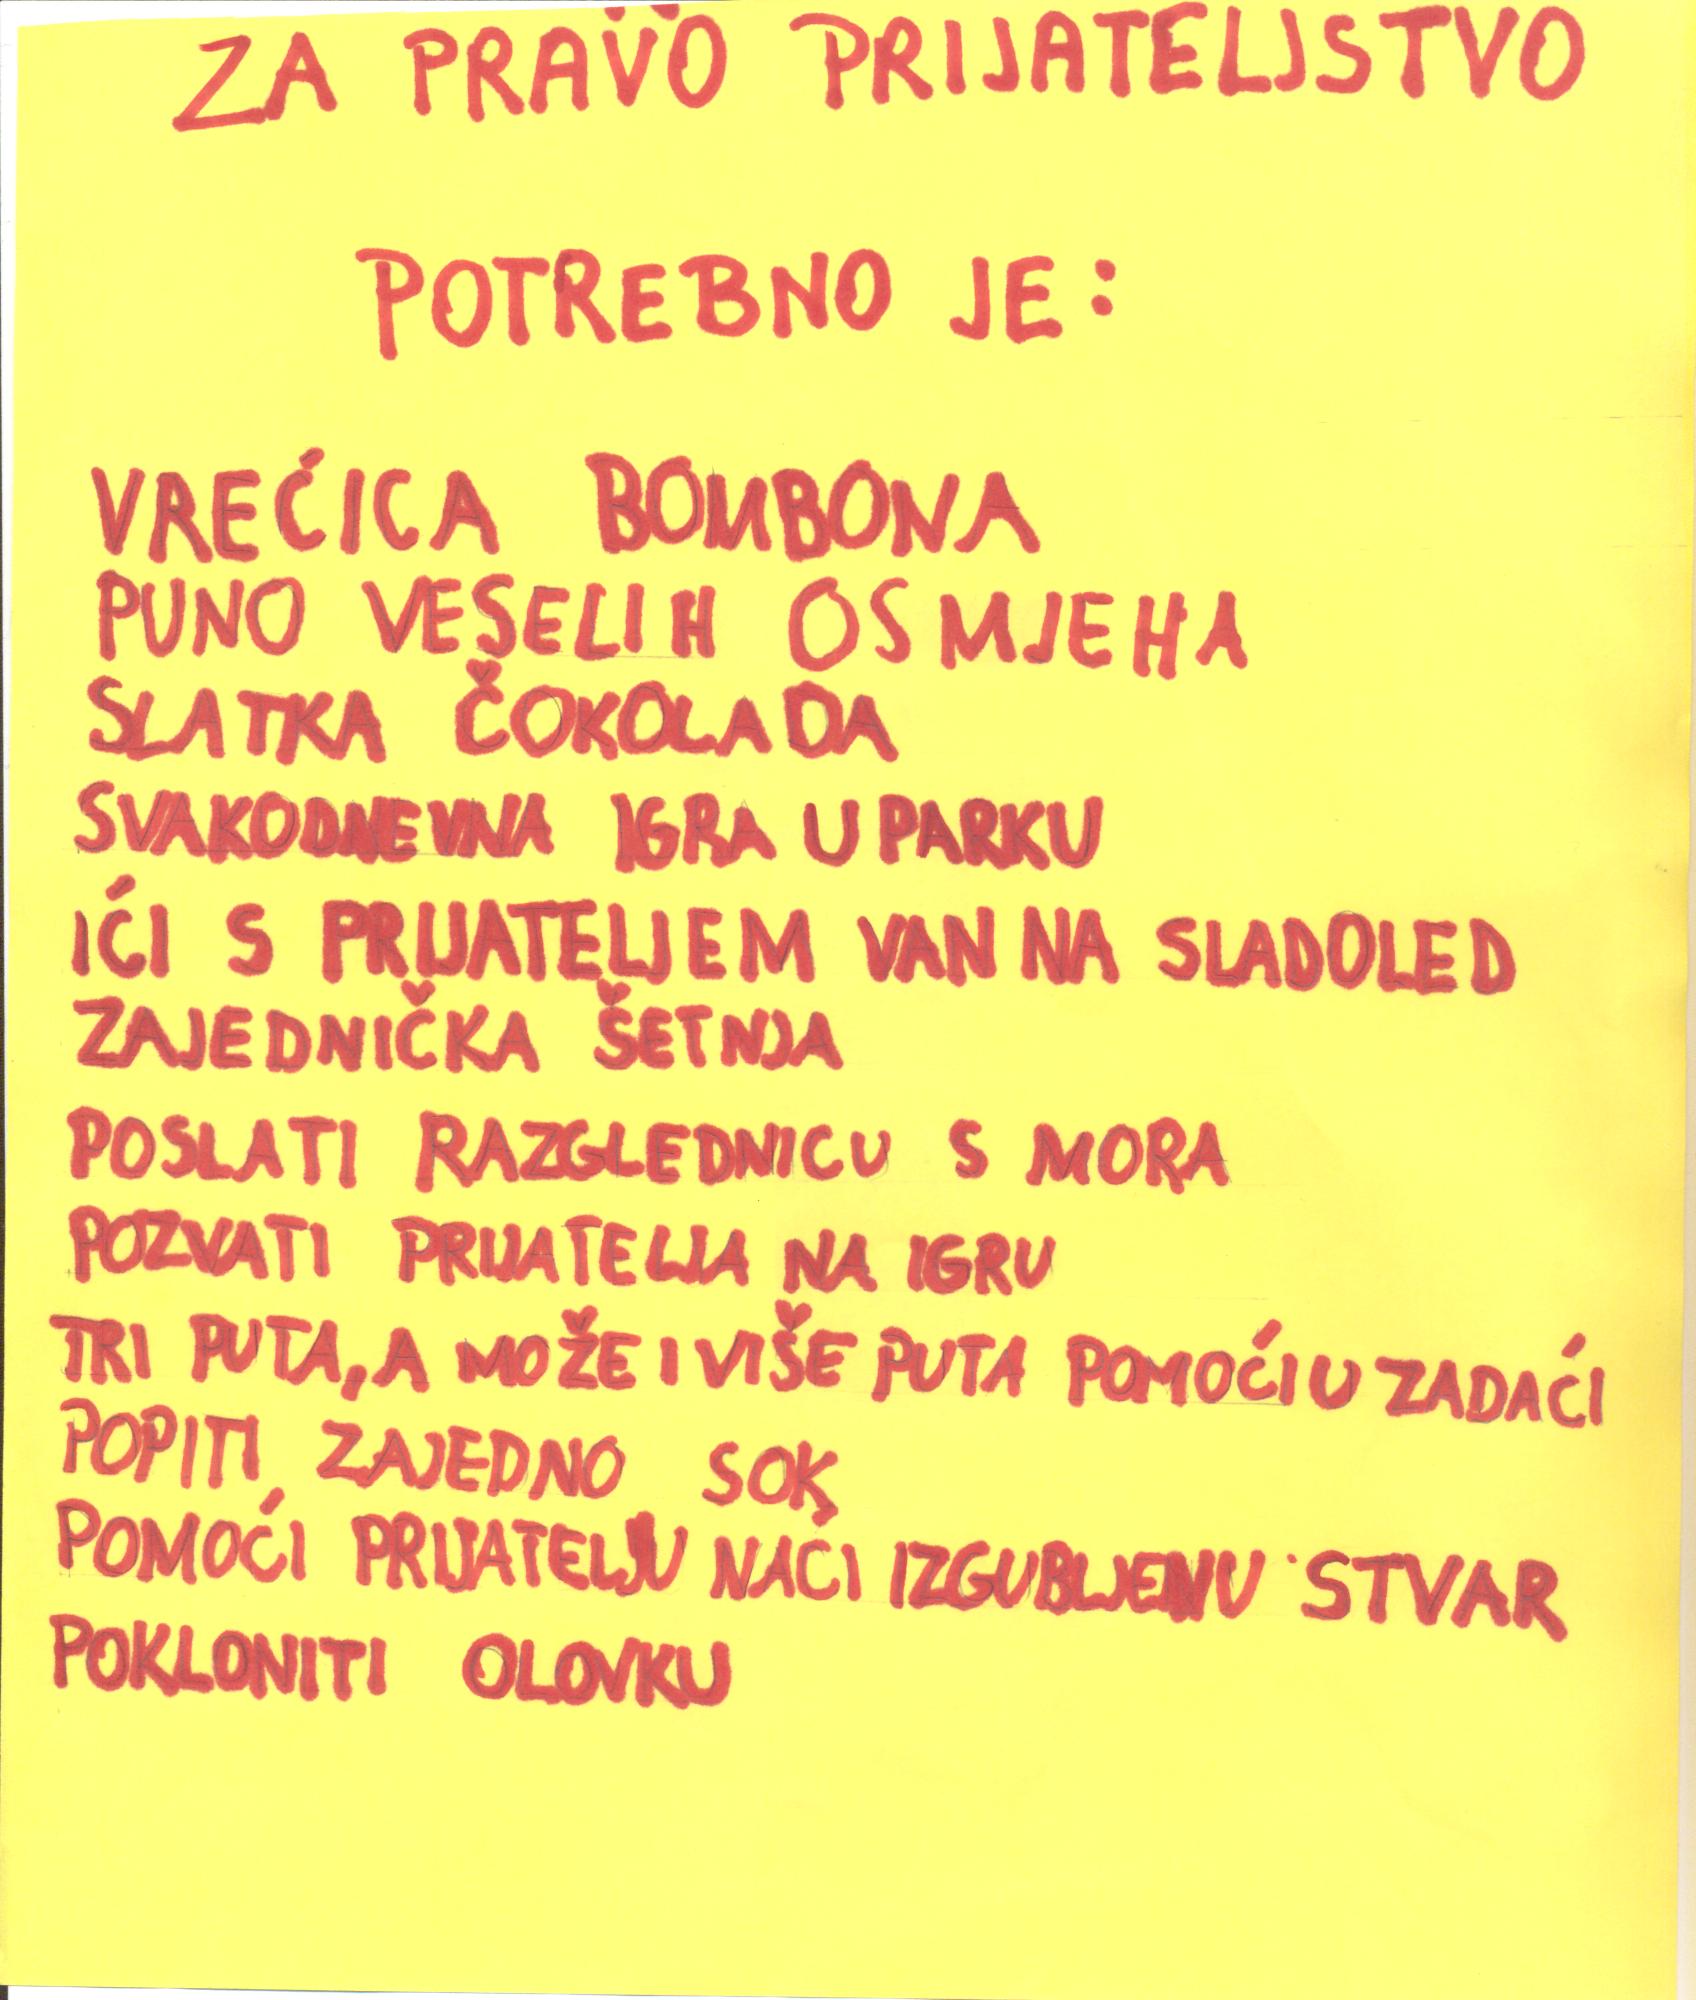 ZA PRAVO PRIJATELJSTVO
POTREBNO JE:
VREĆICA BOMBONA
PUNO VESELIH OSMJEHA
SLATKA ČOKOLADA
SVAKODNEVNA IGRA U PARKU
IĆI S PRIJATELJEM VAN NA SLADOLED
ZAJEDNIČKA ŠETNJA
POSLATI RAZGLEDNICU S MORA
POZVATI PRIJATELJA NA IGRU
TRI PUTA, A MOŽE I VIŠE PUTA POMOĆI U ZADAĆI
POPITI ZAJEDNO SOK
POMOĆI PRIJATELJU NAĆI IZGUBLJENU STVAR
POKLONITI OLOVKU